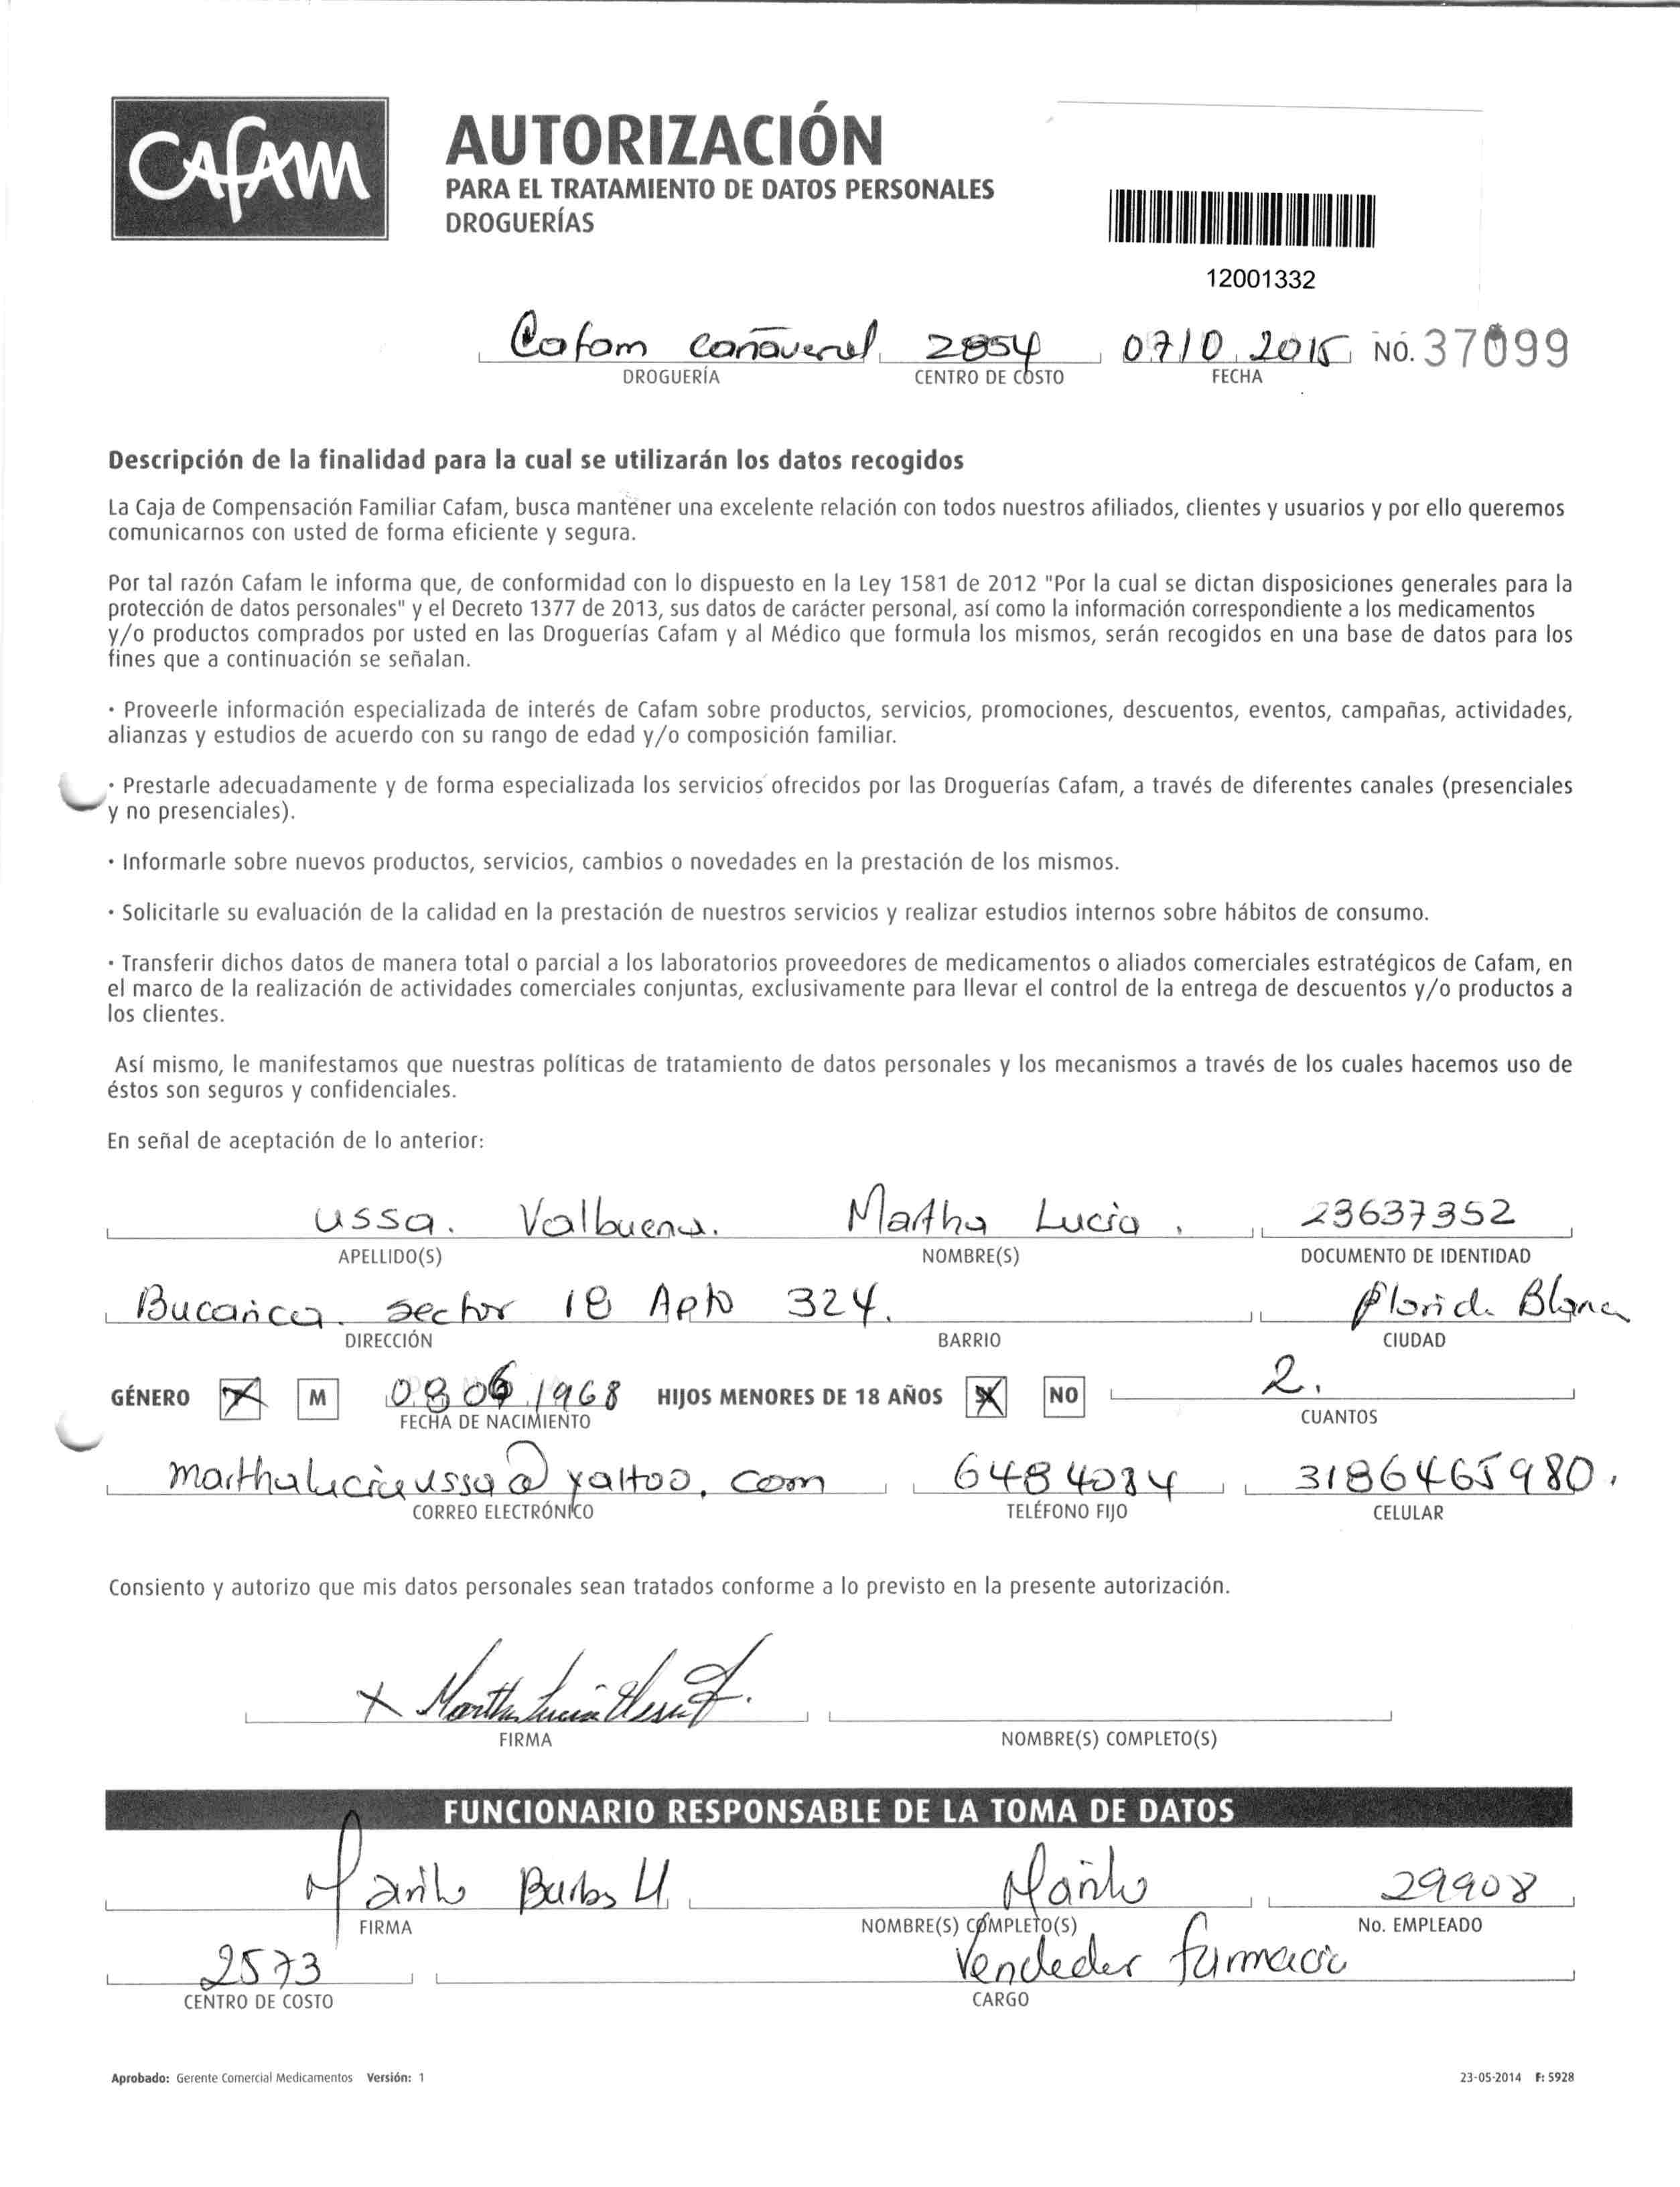 CAFAM
AUTORIZACIÓN
PARA EL TRATAMIENTO DE DATOS PERSONALES
DROGUERÍAS
12001332
Cafam cañaveral 2854 07/10 2015 NO. 37099
DROGUERÍA CENTRO DE COSTO FECHA
Descripción de la finalidad para la cual se utilizarán los datos recogidos
La Caja de Compensación Familiar Cafam, busca mantener una excelente relación con todos nuestros afiliados, clientes y usuarios y por ello queremos
comunicarnos con usted de forma eficiente y segura.
Por tal razón Cafam le informa que, de conformidad con lo dispuesto en la Ley 1581 de 2012 "Por la cual se dictan disposiciones generales para la
protección de datos personales" y el Decreto 1377 de 2013, sus datos de carácter personal, así como la información correspondiente a los medicamentos
y/o productos comprados por usted en las Droguerías Cafam y al Médico que formula los mismos, serán recogidos en una base de datos para los
fines que a continuación se señalan.
· Proveerle información especializada de interés de Cafam sobre productos, servicios, promociones, descuentos, eventos, campañas, actividades,
alianzas y estudios de acuerdo con su rango de edad y/o composición familiar.
· Prestarle adecuadamente y de forma especializada los servicios ofrecidos por las Droguerías Cafam, a través de diferentes canales (presenciales
y no presenciales).
· Informarle sobre nuevos productos, servicios, cambios o novedades en la prestación de los mismos.
· Solicitarle su evaluación de la calidad en la prestación de nuestros servicios y realizar estudios internos sobre hábitos de consumo.
· Transferir dichos datos de manera total o parcial a los laboratorios proveedores de medicamentos o aliados comerciales estratégicos de Cafam, en
el marco de la realización de actividades comerciales conjuntas, exclusivamente para llevar el control de la entrega de descuentos y/o productos a
los clientes.
Así mismo, le manifestamos que nuestras políticas de tratamiento de datos personales y los mecanismos a través de los cuales hacemos uso de
éstos son seguros y confidenciales.
En señal de aceptación de lo anterior:
ussa. Valbuena. Martha Lucia. 23637352
APELLIDO(S) NOMBRE(S) DOCUMENTO DE IDENTIDAD
Bucarica. sector 18 Apto 324. Florida Blanca
DIRECCIÓN BARRIO CIUDAD
GÉNERO X M 08 06 1968 HIJOS MENORES DE 18 AÑOS X NO 2.
FECHA DE NACIMIENTO CUANTOS
marthaluciaussa@yahoo.com 6484084 3186465980.
CORREO ELECTRÓNICO TELÉFONO FIJO CELULAR
Consiento y autorizo que mis datos personales sean tratados conforme a lo previsto en la presente autorización.
X Martha Lucia Ussa
FIRMA NOMBRE(S) COMPLETO(S)
FUNCIONARIO RESPONSABLE DE LA TOMA DE DATOS
29908
FIRMA NOMBRE(S) COMPLETO(S) No. EMPLEADO
2573 Vendedor farmacia
CENTRO DE COSTO CARGO
Aprobado: Gerente Comercial Medicamentos Versión: 1 23-05-2014 F: 5928